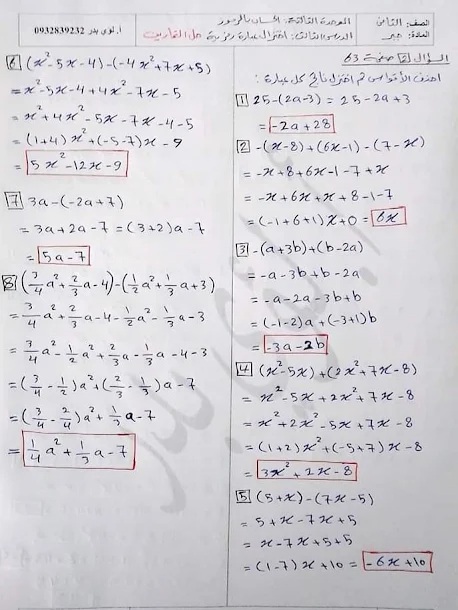 الصف: الثامن
المادة: جبر
الوحدة الثالثة: الحساب بالرموز
الدرس الثالث: اختزال عبارة رمزية حل التمارين
0932839232
السؤال 2 صفحة 63
احذف الأقواس ثم اختزل ناتج كل عبارة:
1 25-(2a-3) = 25-2a+3
= -2a+28
2 -(x-8)+(6x-1)-(7-x)
= -x+8+6x-1-7+x
= -x+6x+x+8-1-7
= (-1+6+1)x+0 = 6x
3 -(a+3b)+(b-2a)
= -a-3b+b-2a
= -a-2a-3b+b
= (-1-2)a+(-3+1)b
= -3a-2b
4 (x²-5x)+(2x²+7x-8)
= x²-5x+2x²+7x-8
= x²+2x²-5x+7x-8
= (1+2)x²+(-5+7)x-8
= 3x²+2x-8
5 (5+x)-(7x-5)
= 5+x-7x+5
= x-7x+5+5
= (1-7)x+10 = -6x+10
6 (x²-5x-4)-(-4x²+7x+5)
= x²-5x-4+4x²-7x-5
= x²+4x²-5x-7x-4-5
= (1+4)x²+(-5-7)x-9
= 5x²-12x-9
7 3a-(-2a+7)
= 3a+2a-7 = (3+2)a-7
= 5a-7
8 (3/4a²+2/3a-4)-(1/2a²+1/3a+3)
= 3/4a²+2/3a-4-1/2a²-1/3a-3
= 3/4a²-1/2a²+2/3a-1/3a-4-3
= (3/4-1/2)a²+(2/3-1/3)a-7
= (3/4-2/4)a²+1/3a-7
= 1/4a²+1/3a-7